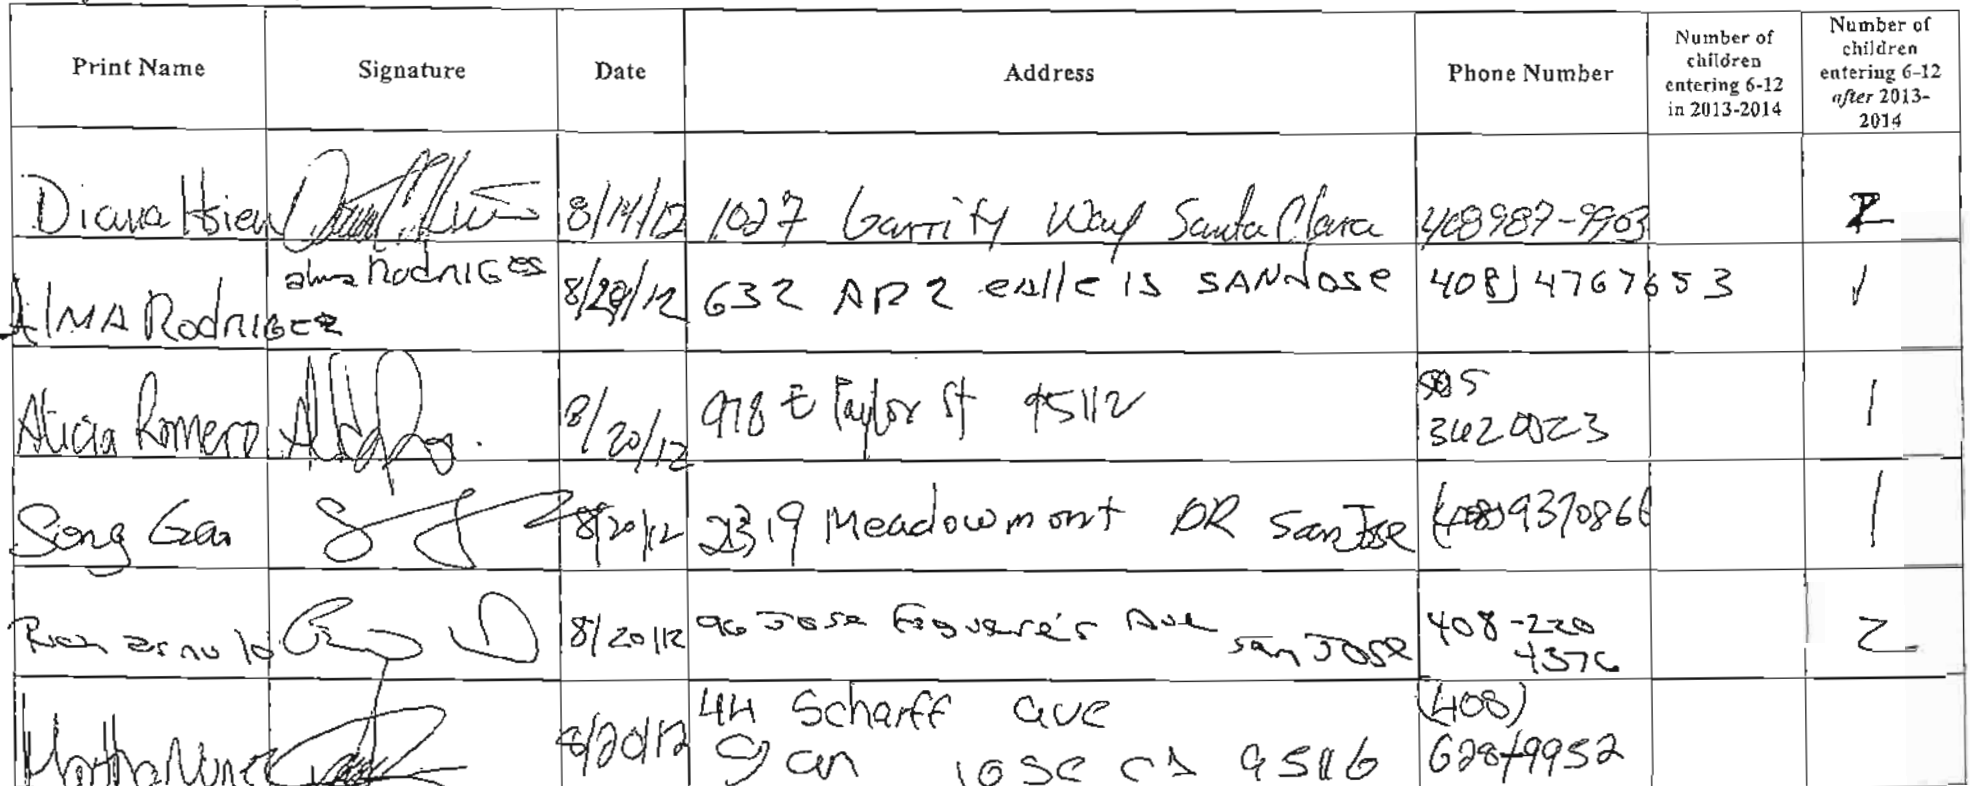 Print Name Signature Date Address Phone Number Number of children entering 6-12 in 2013-2014 Number of children entering 6-12 after 2013-2014
Diana Hsieh 8/14/12 1027 Garrity Way Santa Clara 408987-9903 2
Alma Rodriges
AlMA Rodriguez 8/29/12 632 calle SAN Jose 408) 4767653 1
Alicia Romero 8/20/12 978 E Taylor St 95112 1
Song Gao 8/20/12 2319 Meadowmont DR San Jose (408) 9370866 1
8/20/12 96 Jose Figueres Ave San Jose 408-220 4376 2
Martha Nunez 8/20/12 44 Scharff ave (408)
San jose CA 95116 628-9952